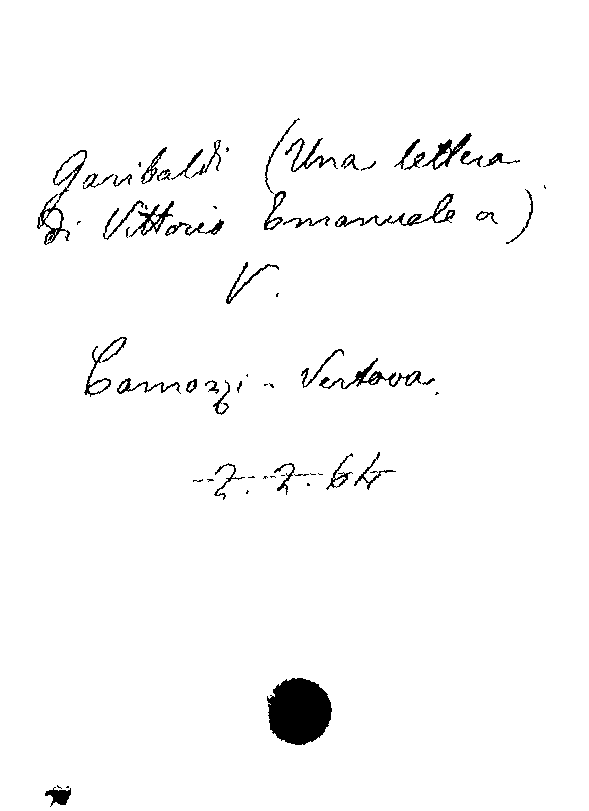 Garibaldi (Una lettera
di Vittorio Emanuele a)
V.
Camozzi - Vertova.
2. 2. 64